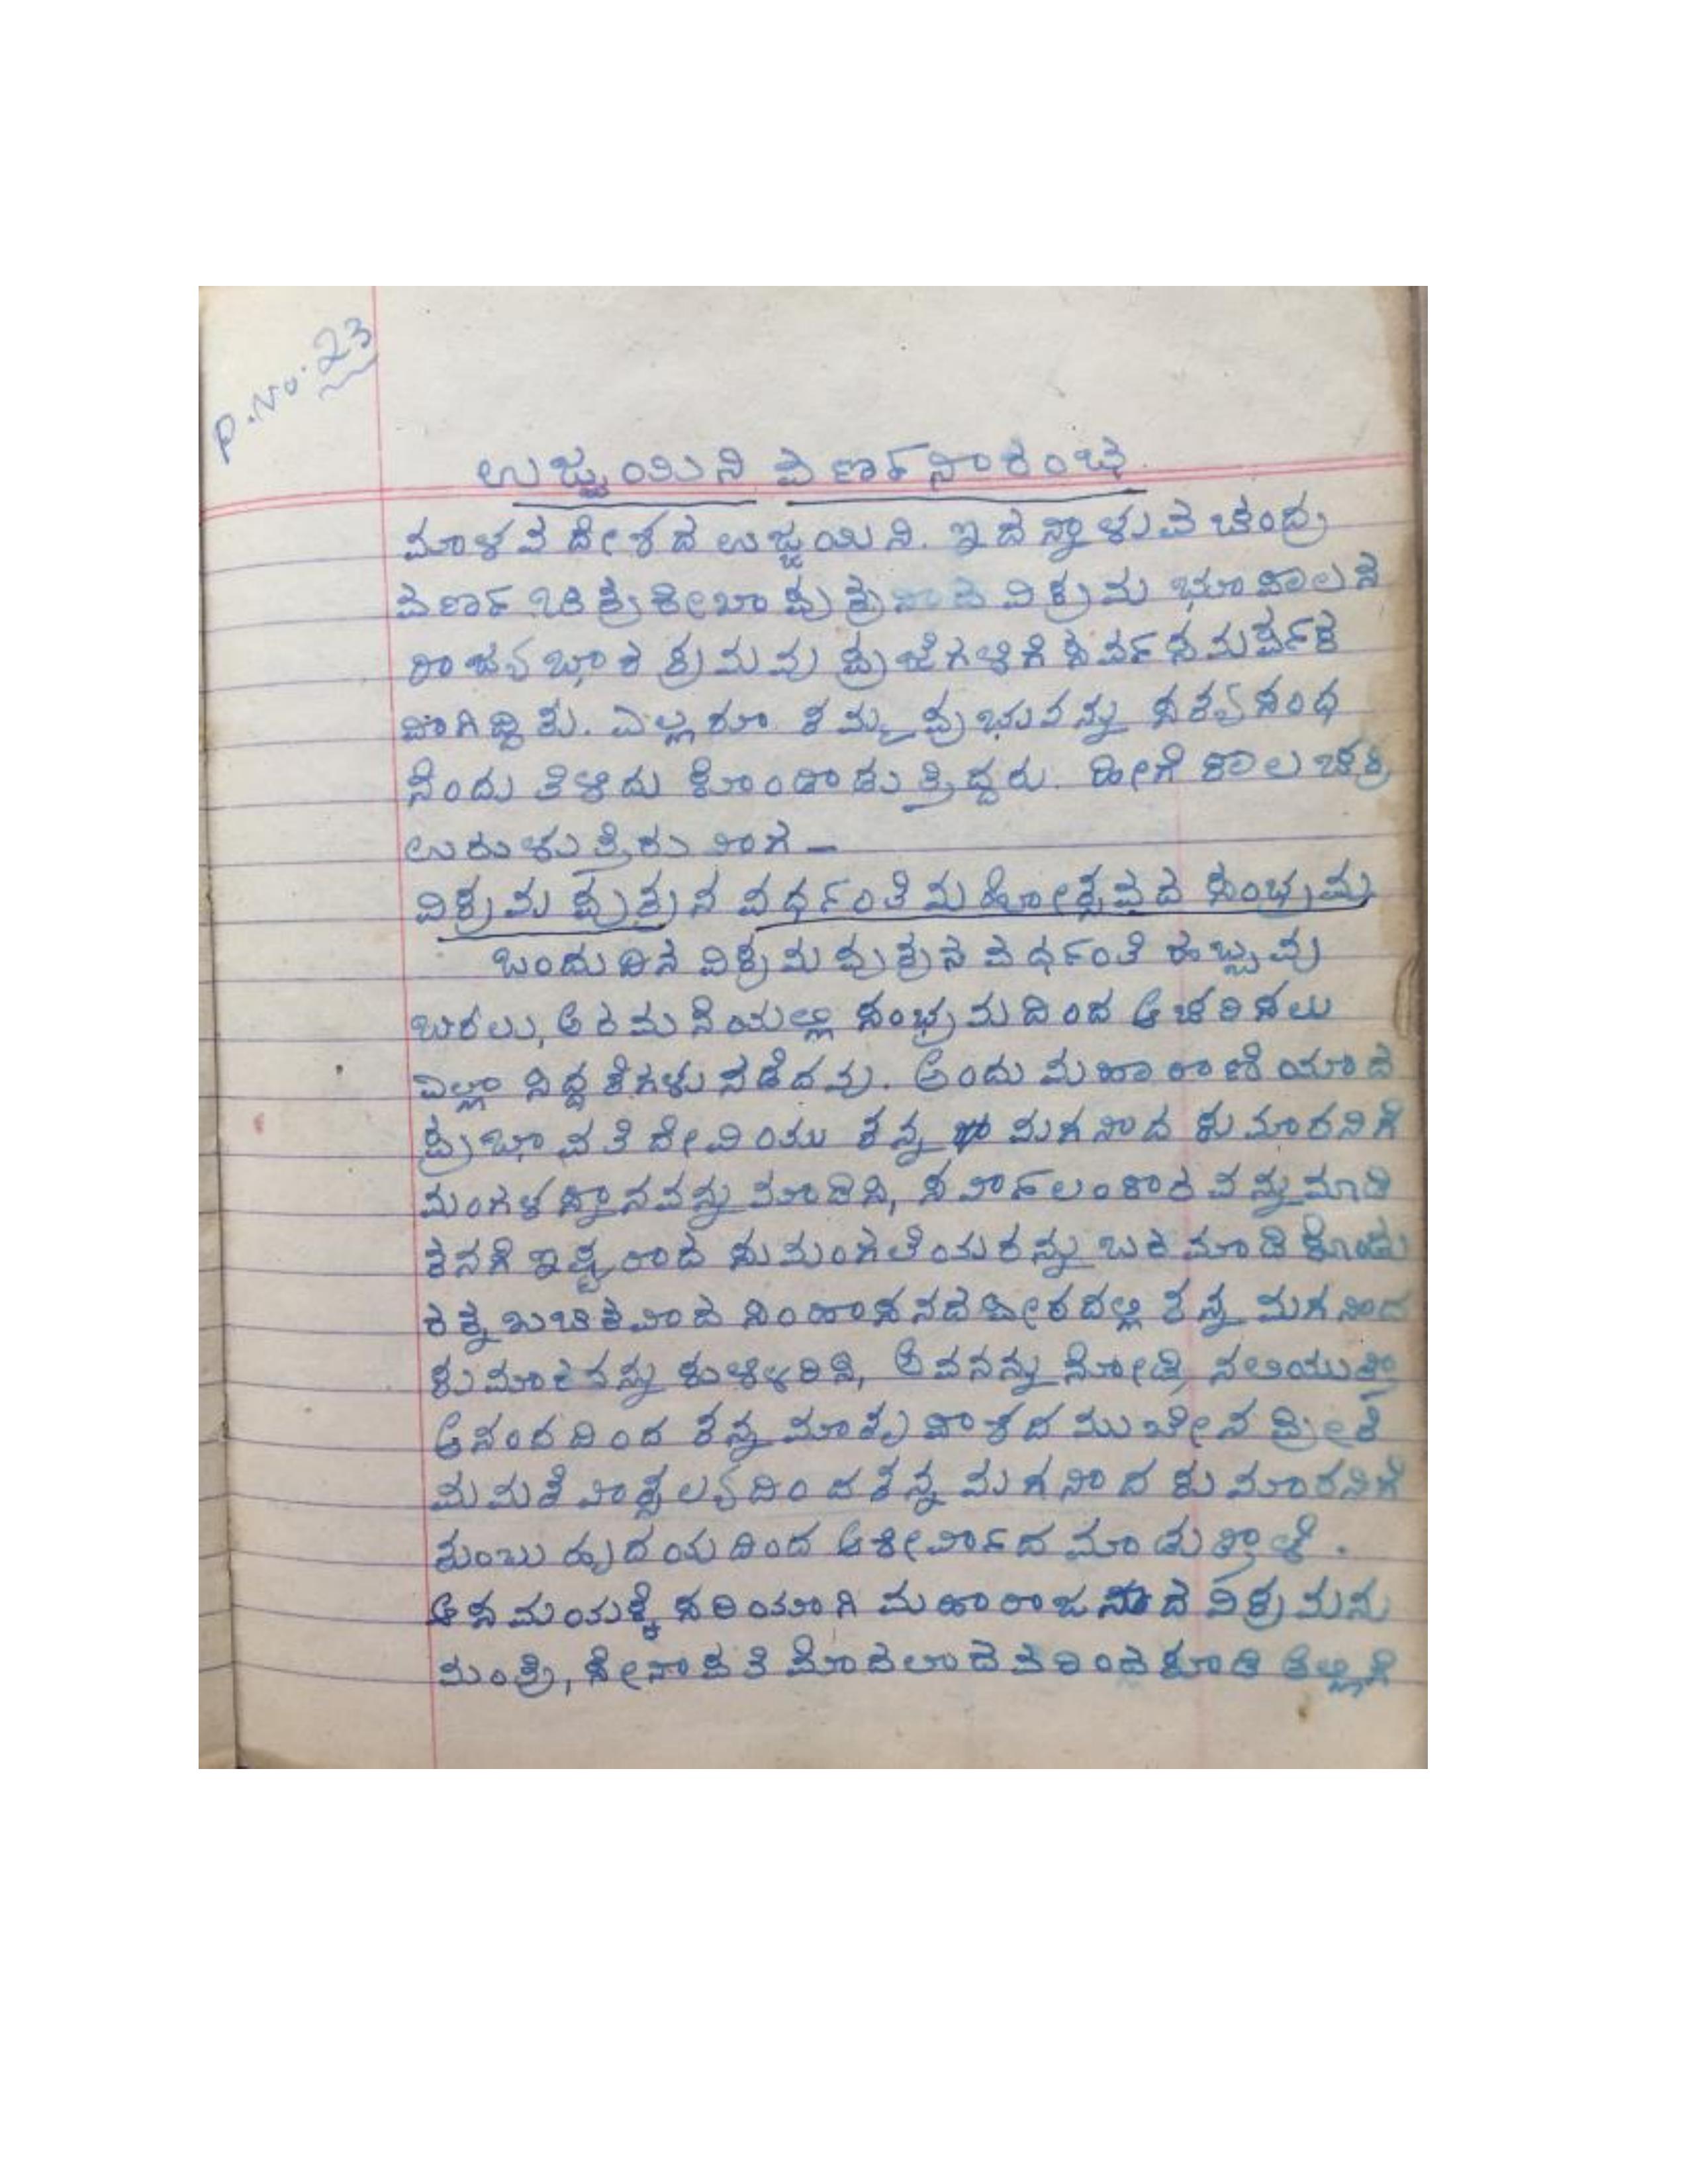 P.No. 23
ಉಜ್ಜಯಿನಿ ವರ್ಣನಾರಂಭ.
ಮಾಳವ ದೇಶದ ಉಜ್ಜಯಿನಿ. ಇದನ್ನಾಳುವ ಚಂದ್ರ
ವರ್ಣ ಚಿತ್ರರೇಖಾ ಪುತ್ರನಾದ ವಿಕ್ರಮ ಭೂಪಾಲನ
ರಾಜ್ಯಭಾರ ಕ್ರಮವು ಪ್ರಜೆಗಳಿಗೆ ಸರ್ವಸಮರ್ಪಕ
ವಾಗಿದ್ದಿತು. ಎಲ್ಲರೂ ತಮ್ಮ ಪ್ರಭುವನ್ನು ಸತ್ಯಸಂಧ
ನೆಂದು ತಿಳಿದು ಕೊಂಡಾಡುತ್ತಿದ್ದರು. ಹೀಗೆ ಕಾಲಚಕ್ರ
ಉರುಳುತ್ತಿರುವಾಗ –
ವಿಕ್ರಮ ಪುತ್ರನ ವರ್ಧಂತಿ ಮಹೋತ್ಸವದ ಸಂಭ್ರಮ
ಒಂದು ದಿನ ವಿಕ್ರಮ ಪುತ್ರನ ವರ್ಧಂತಿ ಹಬ್ಬವು
ಬರಲು, ಅರಮನೆಯಲ್ಲಿ ಸಂಭ್ರಮದಿಂದ ಆಚರಿಸಲು
ಎಲ್ಲಾ ಸಿದ್ಧತೆಗಳು ನಡೆದವು. ಅಂದು ಮಹಾರಾಣಿಯಾದ
ಪ್ರಭಾವತಿ ದೇವಿಯು ತನ್ನ ಮಗನಾದ ಕುಮಾರನಿಗೆ
ಮಂಗಳಸ್ನಾನವನ್ನು ಮಾಡಿಸಿ, ಸರ್ವಾಲಂಕಾರವನ್ನು ಮಾಡಿ
ತನಗೆ ಇಷ್ಟರಾದ ಸುಮಂಗಲಿಯರನ್ನು ಬರಮಾಡಿಕೊಂಡು
ರತ್ನಖಚಿತವಾದ ಸಿಂಹಾಸನದ ಪೀಠದಲ್ಲಿ ತನ್ನ ಮಗನಾದ
ಕುಮಾರನನ್ನು ಕುಳ್ಳಿರಿಸಿ, ಅವನನ್ನು ನೋಡಿ ನಲಿಯುತ್ತಾ
ಆನಂದದಿಂದ ತನ್ನ ಮಾತೃ ಪಾಶದ ಮುಖೇನ ಪ್ರೀತಿ
ಮಮತೆ ವಾತ್ಸಲ್ಯದಿಂದ ತನ್ನ ಮಗನಾದ ಕುಮಾರನಿಗೆ
ತುಂಬು ಹೃದಯದಿಂದ ಆಶೀರ್ವಾದ ಮಾಡುತ್ತಾಳೆ.
ಆ ಸಮಯಕ್ಕೆ ಸರಿಯಾಗಿ ಮಹಾರಾಜನಾದ ವಿಕ್ರಮನು
ಮಂತ್ರಿ, ಸೇನಾಪತಿ ಮೊದಲಾದವರಿಂದ ಕೂಡಿ ಅಲ್ಲಿಗೆ